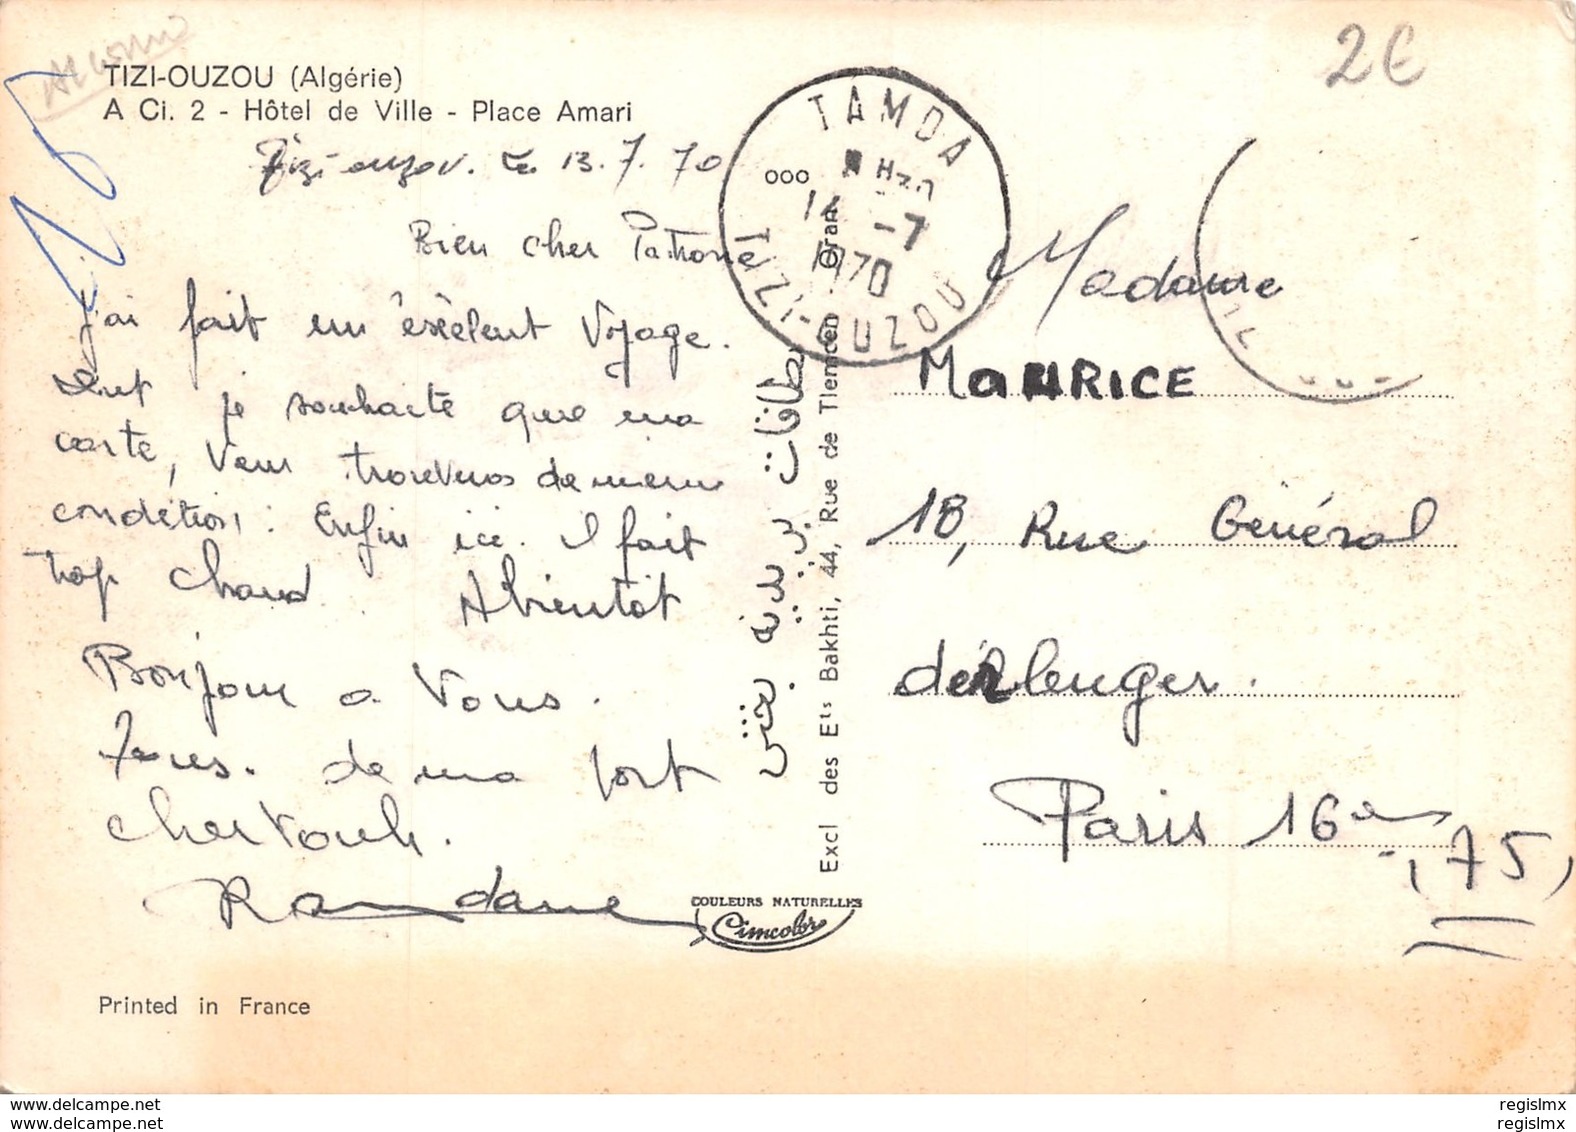 TIZI-OUZOU (Algérie)
A Ci. 2 - Hôtel de Ville - Place Amari
Tizi-ouzou. Le 13.7.70
Bien cher Patronet
J'ai fait un éxèlent Voyage.
je souhaite que ma
carte, Vous trouveras de meme
condétion: Enfin ici. il fait
trop chaud. Abientot
Bonjour a Vous.
de ma part
Randane
Printed in France
COULEURS NATURELLES
Cimcolor
Excl des Ets Bakhti, 44, Rue de Tlemcen - Oran
بطاقات بريدية بختي
TAMDA
14 -7
1970
TIZI-OUZOU
2€
Madame
MaURICE
18, Rue Général
derlenger.
Paris 16em
(75)
www.delcampe.net
www.delcampe.net
regislmx
regislmx